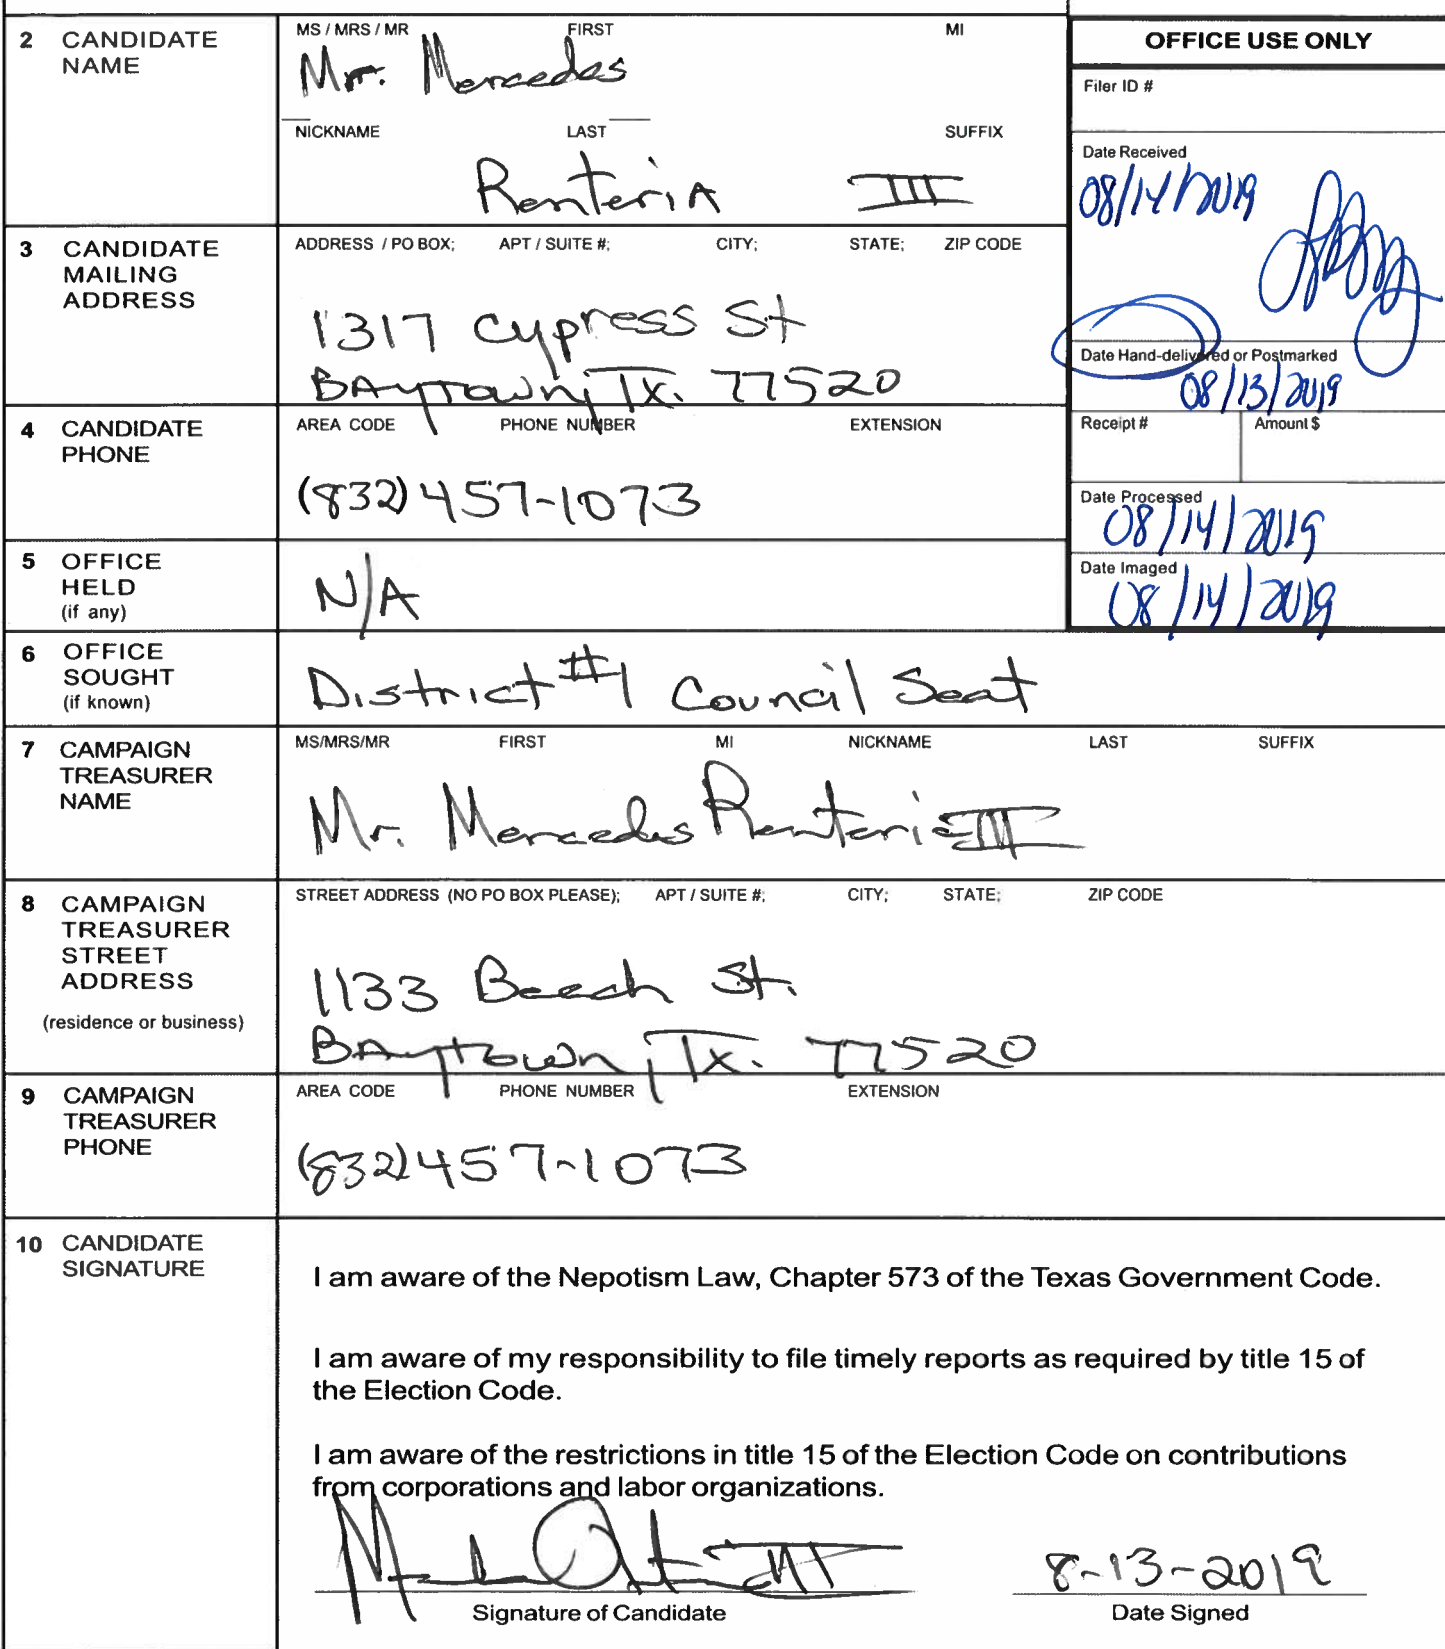 2 CANDIDATE NAME
MS / MRS / MR FIRST MI
Mr. Mercedes
NICKNAME LAST SUFFIX
Renteria III
OFFICE USE ONLY
Filer ID #
Date Received
08/14/2019
Date Hand-delivered or Postmarked
08/13/2019
Receipt # Amount $
Date Processed
08/14/2019
Date Imaged
08/14/2019
3 CANDIDATE MAILING ADDRESS
ADDRESS / PO BOX; APT / SUITE #; CITY; STATE; ZIP CODE
1317 Cypress St
BAytown, Tx. 77520
4 CANDIDATE PHONE
AREA CODE PHONE NUMBER EXTENSION
(832) 457-1073
5 OFFICE HELD (if any)
N/A
6 OFFICE SOUGHT (if known)
District #1 Council Seat
7 CAMPAIGN TREASURER NAME
MS/MRS/MR FIRST MI NICKNAME LAST SUFFIX
Mr. Mercedes Renteria III
8 CAMPAIGN TREASURER STREET ADDRESS (residence or business)
STREET ADDRESS (NO PO BOX PLEASE); APT / SUITE #; CITY; STATE; ZIP CODE
1133 Beech St.
BAytown, Tx. 77520
9 CAMPAIGN TREASURER PHONE
AREA CODE PHONE NUMBER EXTENSION
(832) 457-1073
10 CANDIDATE SIGNATURE
I am aware of the Nepotism Law, Chapter 573 of the Texas Government Code.
I am aware of my responsibility to file timely reports as required by title 15 of
the Election Code.
I am aware of the restrictions in title 15 of the Election Code on contributions
from corporations and labor organizations.
8-13-2019
Signature of Candidate Date Signed